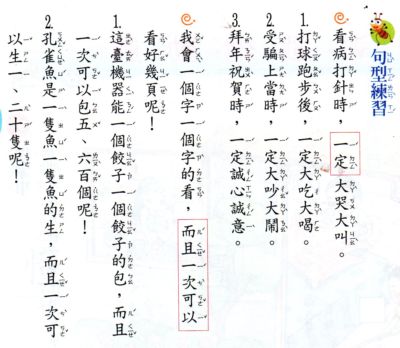 句型練習
看病打針時，一定大哭大叫。
1.打球跑步後，一定大吃大喝。
2.受騙上當時，一定大吵大鬧。
3.拜年祝賀時，一定誠心誠意。
我會一個字一個字的看，而且一次可以
看好幾頁呢！
1.這臺機器能一個餃子一個餃子的包，而且
一次可以包五、六百個呢！
2.孔雀魚是一隻魚一隻魚的生，而且一次可
以生一、二十隻呢！